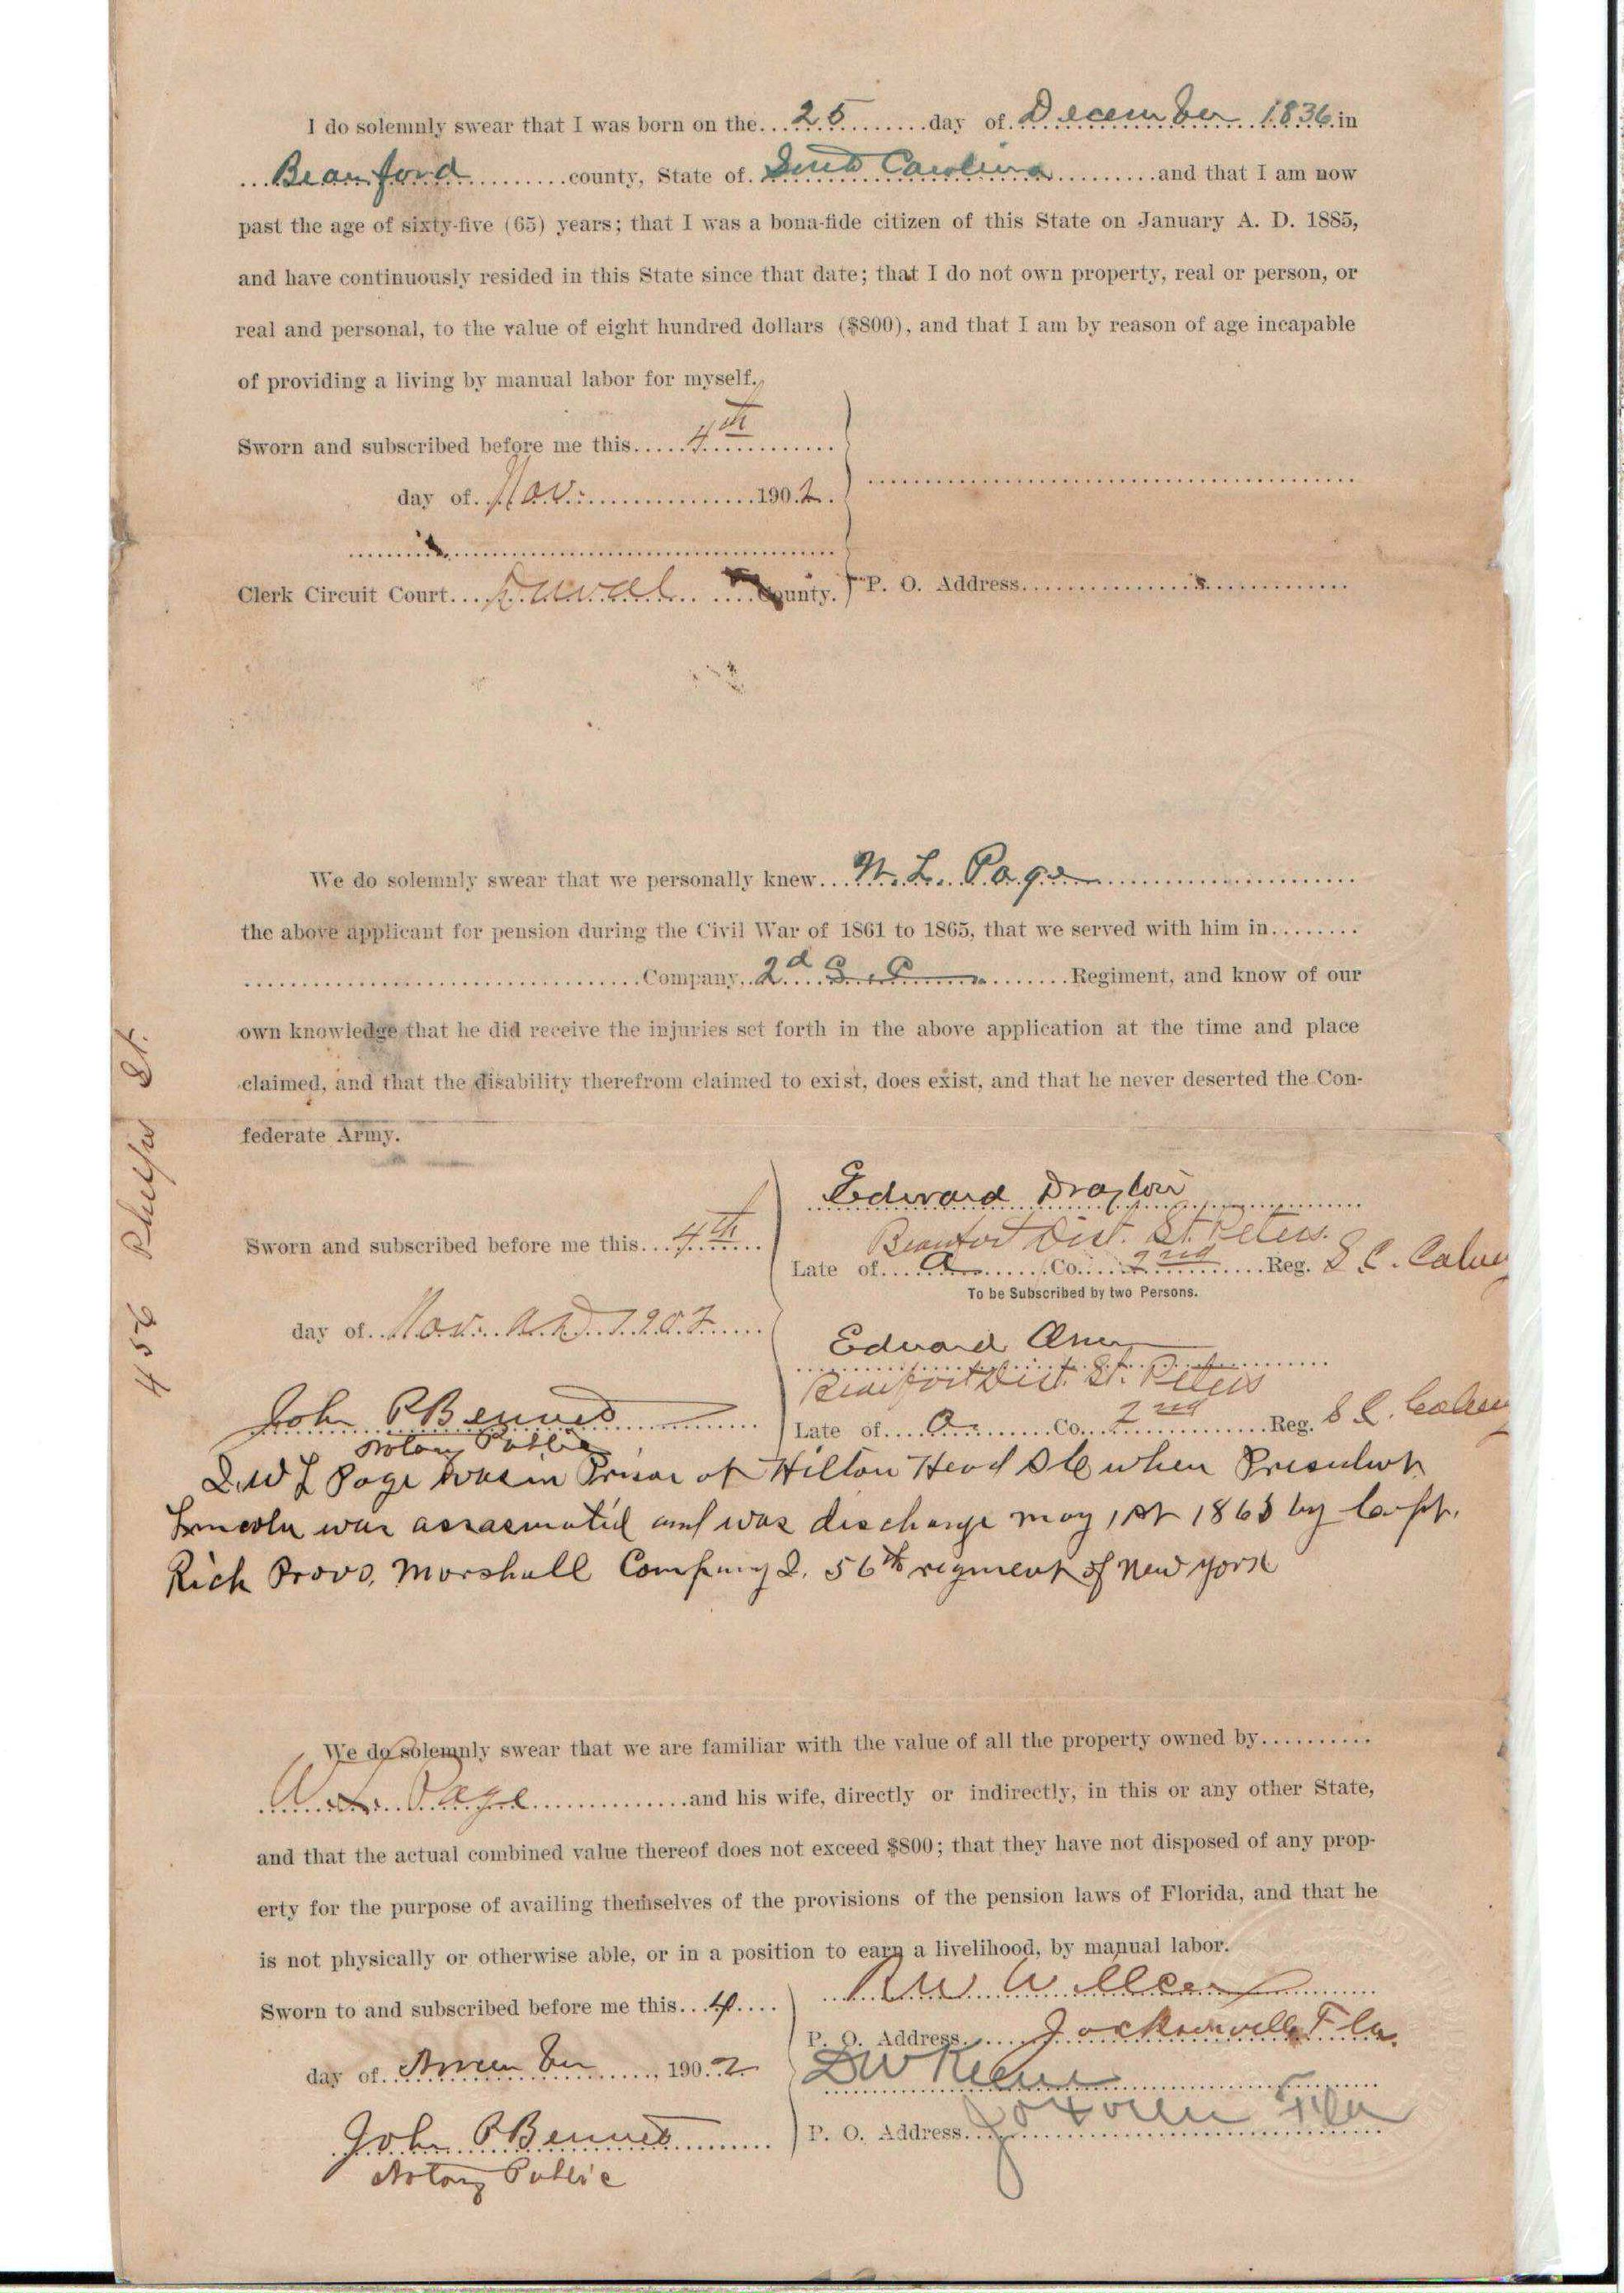 I do solemnly swear that I was born on the...25.......day of December 1836 in
Beauford..........county, State of South Carolina..........and that I am now
past the age of sixty-five (65) years; that I was a bona-fide citizen of this State on January A. D. 1885,
and have continuously resided in this State since that date; that I do not own property, real or person, or
real and personal, to the value of eight hundred dollars ($800), and that I am by reason of age incapable
of providing a living by manual labor for myself.
Sworn and subscribed before me this.....4th..........
day of Nov. ................1902.
Clerk Circuit Court...Duval.......County.
P. O. Address..............................
We do solemnly swear that we personally knew...W. L. Page
the above applicant for pension during the Civil War of 1861 to 1865, that we served with him in........
................................Company, 2d S. C. .......Regiment, and know of our
own knowledge that he did receive the injuries set forth in the above application at the time and place
claimed, and that the disability therefrom claimed to exist, does exist, and that he never deserted the Con-
federate Army.
456 St.
Sworn and subscribed before me this...4th....
day of Nov. A.D. 1902
John P Bennet
Notary Public
Edward Drayton
Beaufort Dist. St. Peters.
Late of....A.......Co....2nd........Reg. S C.
To be Subscribed by two Persons.
Edward
Beaufort Dist. St. Peters
Late of....A.......Co....2nd........Reg. S C.
I. W L Page was in Prison at Hilton Head S C when President
Lincoln was assasinatid and was discharge may 1st 1865 by Capt.
Rich Provo. Marshall Company I. 56th regment of New york
We do solemnly swear that we are familiar with the value of all the property owned by..........
W. L. Page..............and his wife, directly or indirectly, in this or any other State,
and that the actual combined value thereof does not exceed $800; that they have not disposed of any prop-
erty for the purpose of availing themselves of the provisions of the pension laws of Florida, and that he
is not physically or otherwise able, or in a position to earn a livelihood, by manual labor.
Sworn to and subscribed before me this...4....
day of November......, 1902
John P Bennet
Notary Public
R W
P. O. Address.....Jacksonville Fla.
D W Keene
P. O. Address. Fla